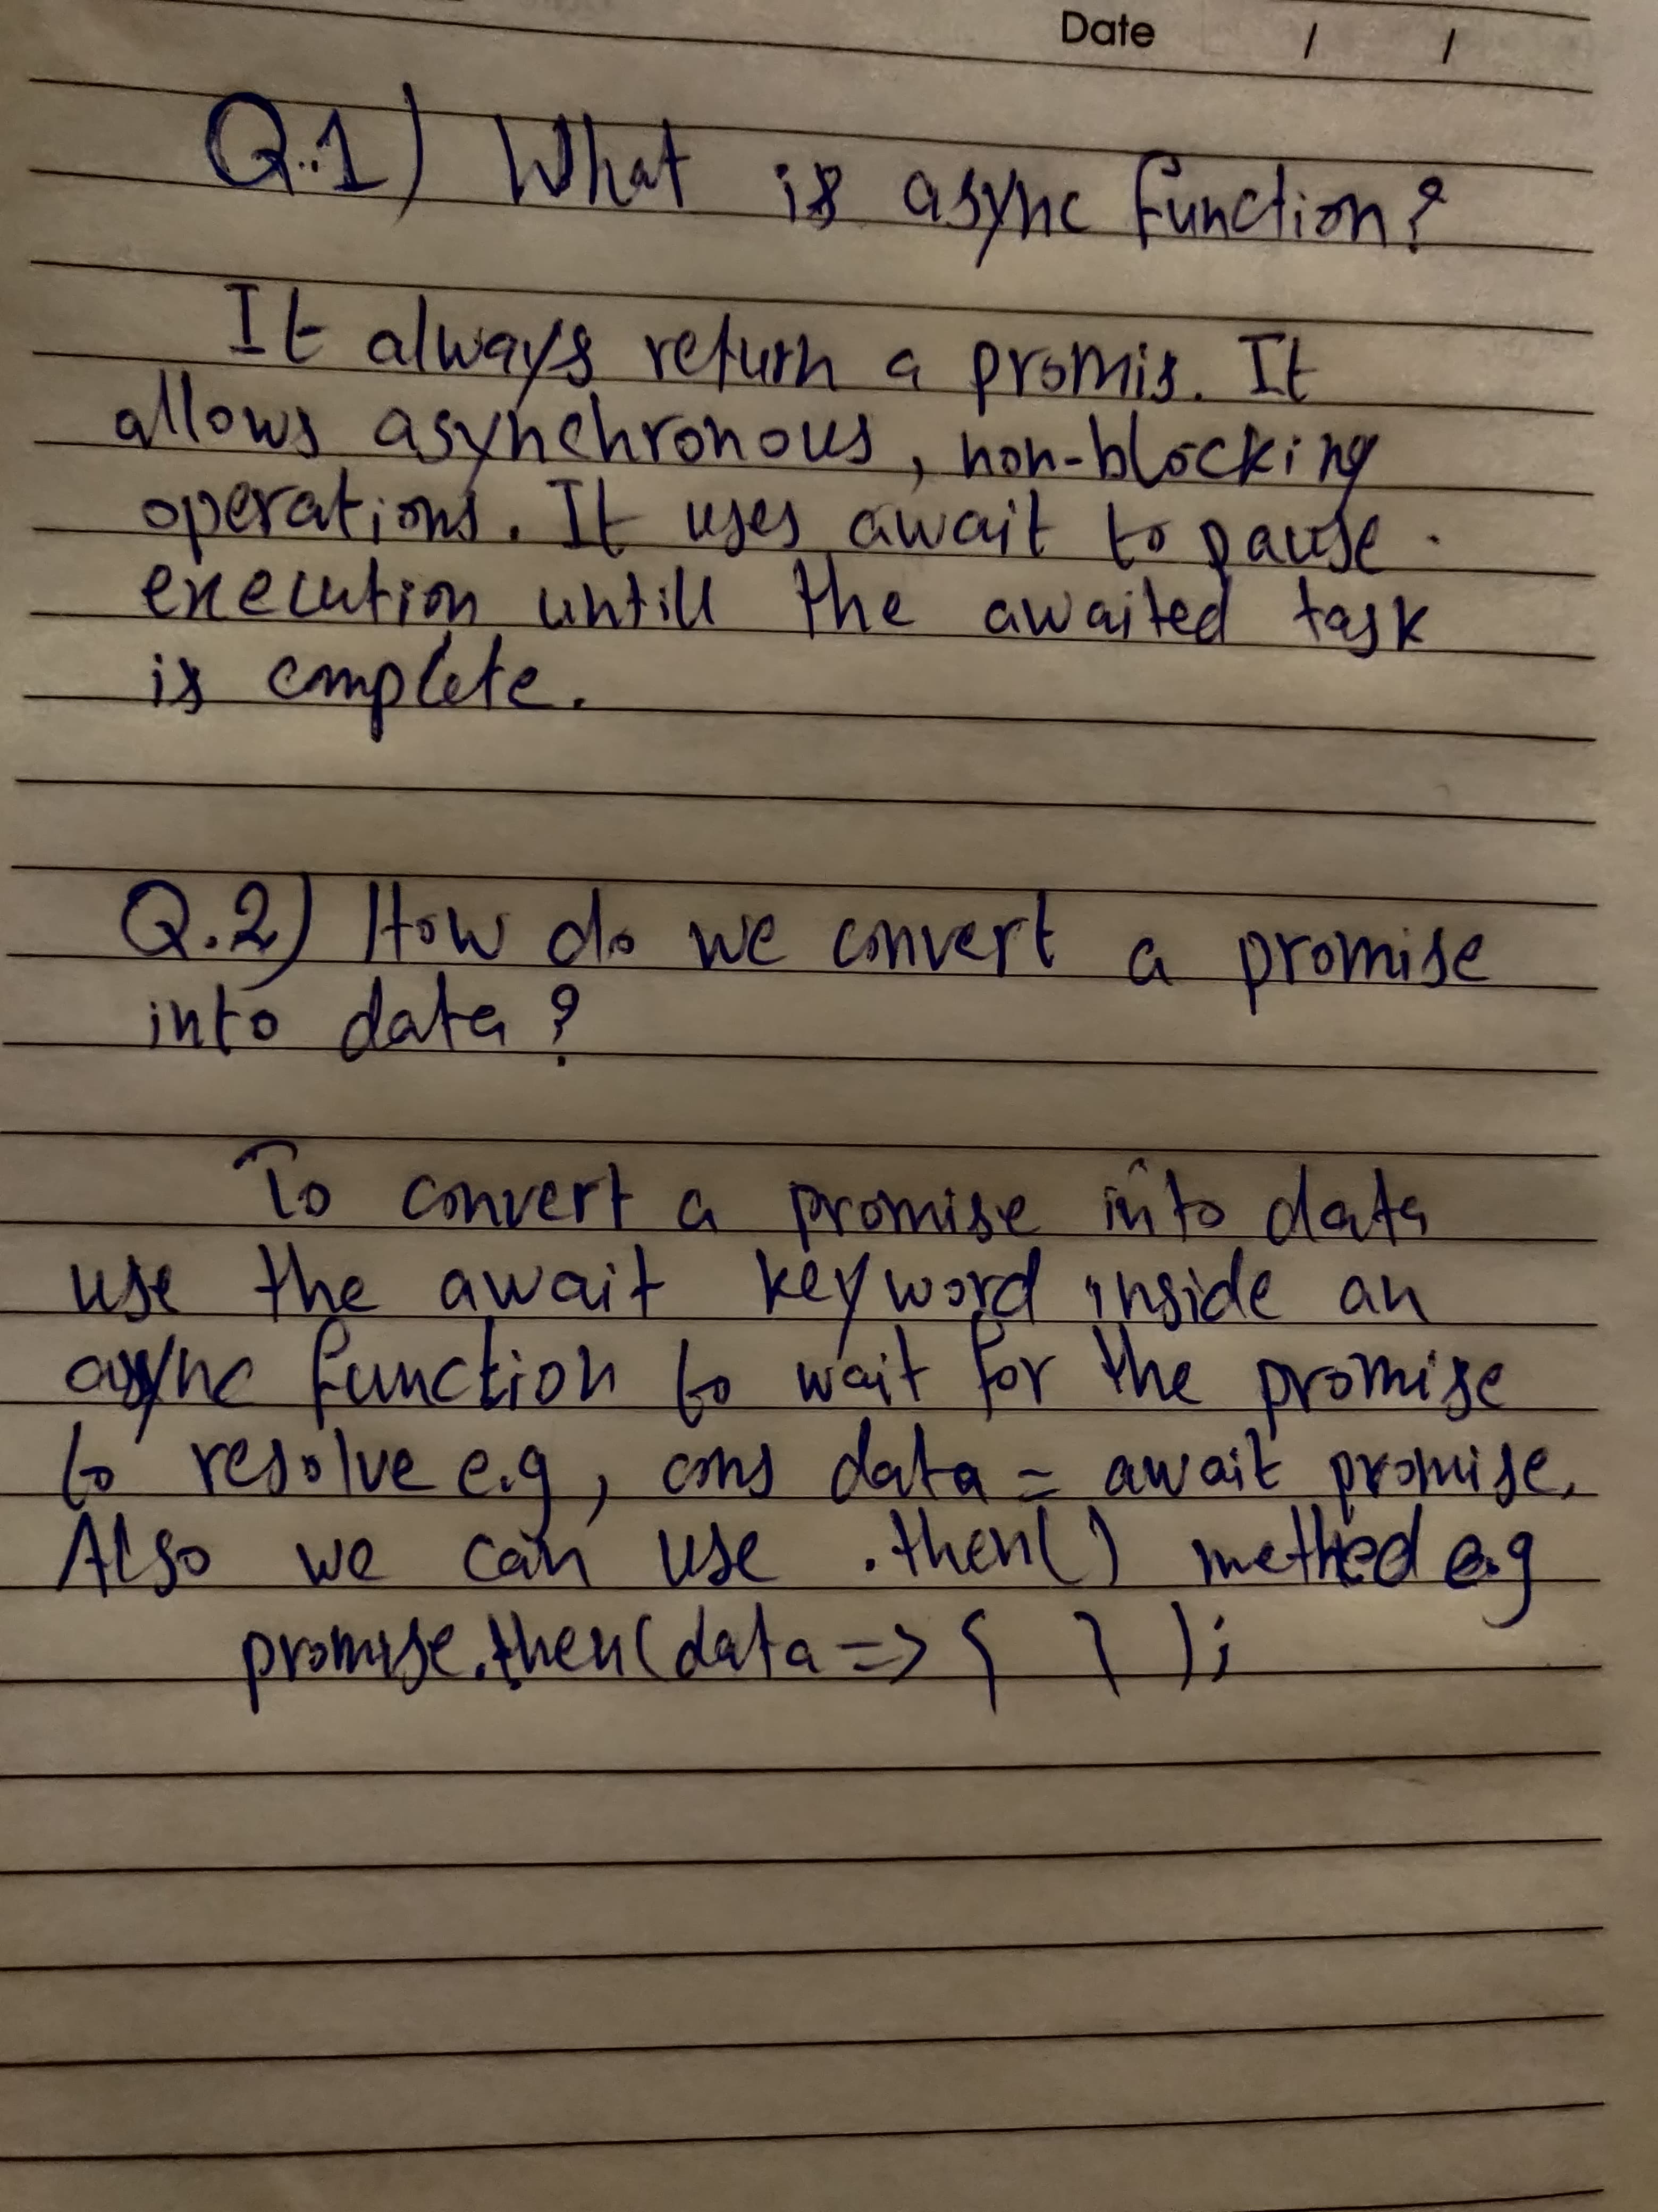 Date / /
Q.1) What is async function?
It always return a promis. It
allows asynchronous, non-blocking
operations. It uses await to pause.
execution untill the awaited task
is complete.
Q.2) How do we convert a promise
into data?
To convert a promise into data
use the await keyword inside an
async function to wait for the promise
to resolve e.g, cons data = await promise.
Also we can use .then() method e.g
promise.then(data => { } );